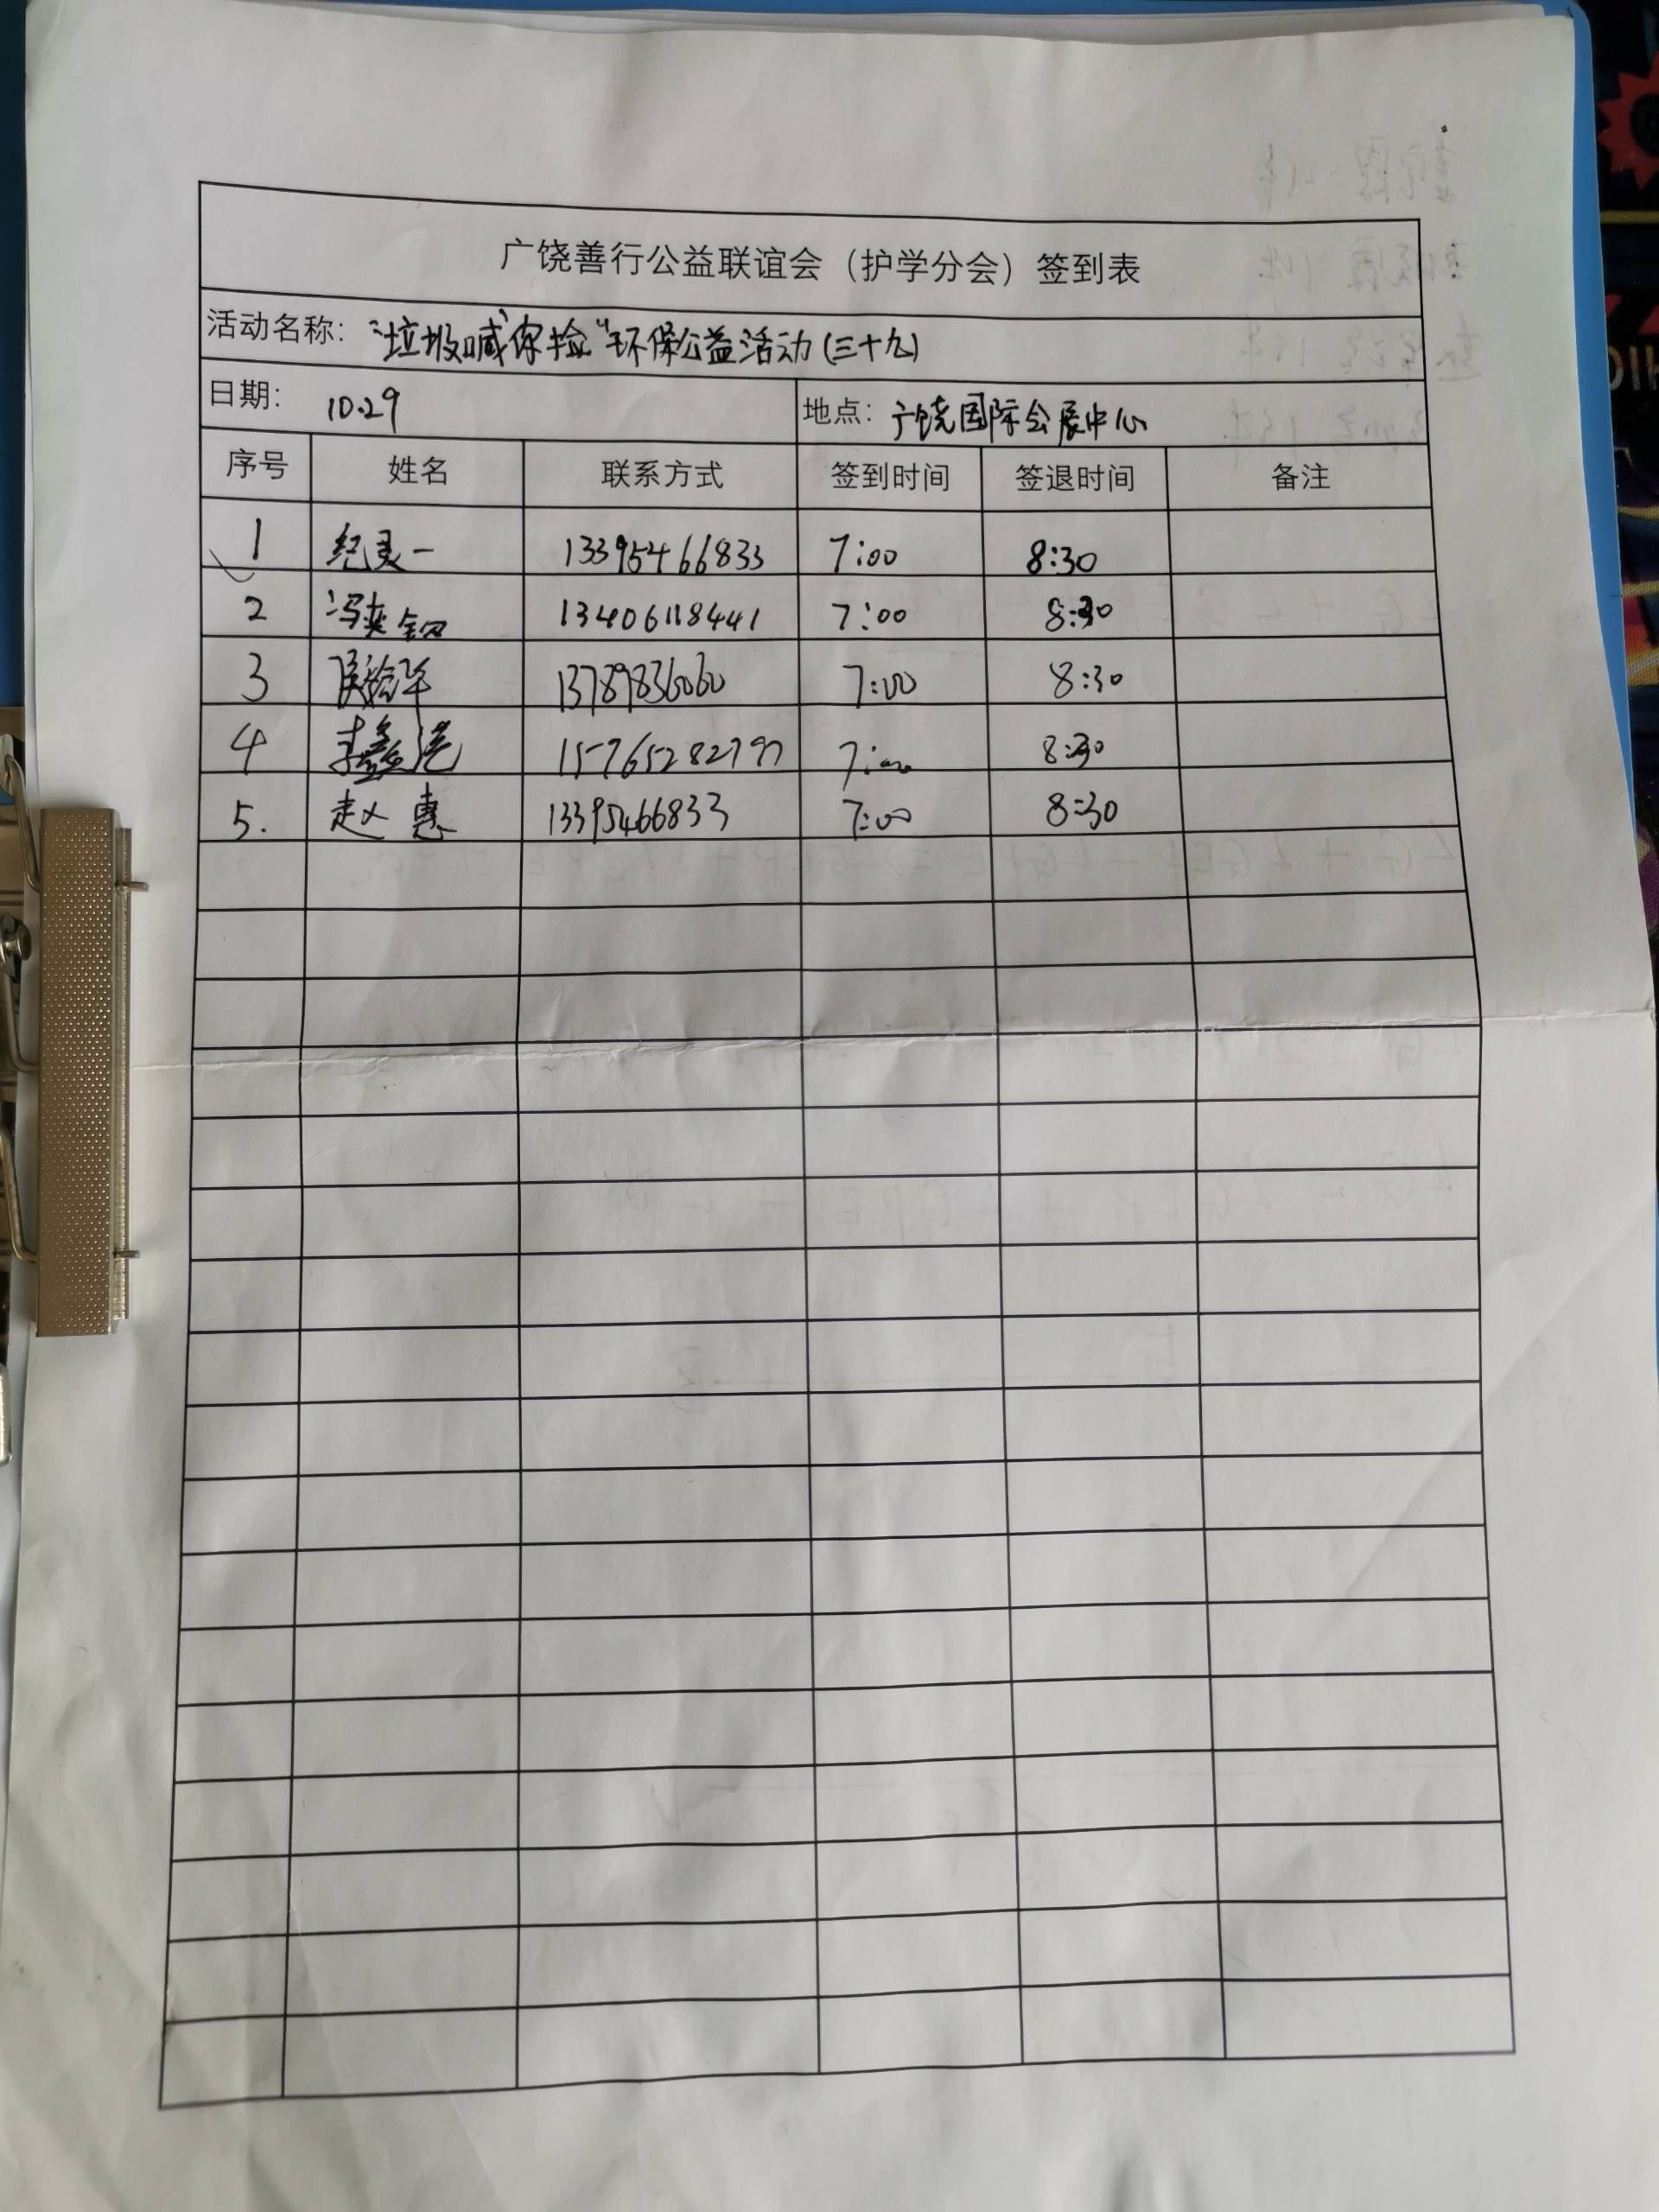 广饶善行公益联谊会（护学分会）签到表
活动名称： “垃圾喊‘保险’”环保公益活动(三十九)
日期： 10.29 地点： 广饶国际会展中心
序号 姓名 联系方式 签到时间 签退时间 备注
1 纪灵一 13395466833 7:00 8:30
2 冯奕钢 13406118441 7:00 8:30
3 13789836060 7:00 8:30
4 李鑫港 15765282797 7:00 8:30
5. 赵惠 13395466833 7:00 8:30